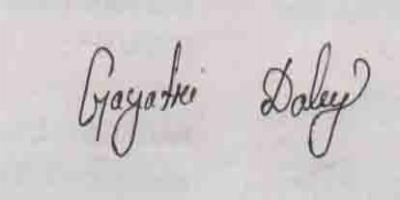 Gayatri Daley